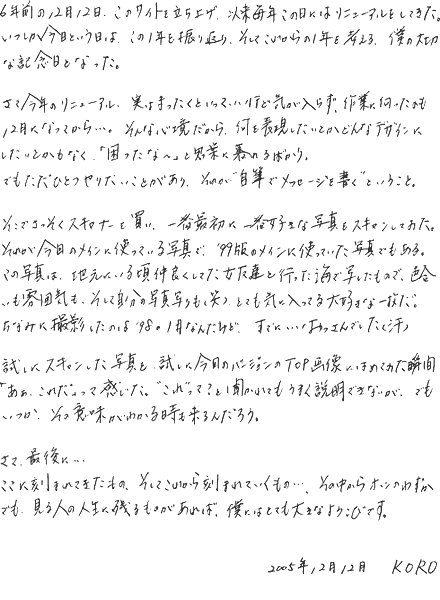 6年前の12月12日、このサイトを立ち上げ、以来毎年この日にはリニューアルをしてきた。
いつしか今日という日は、この1年を振り返り、そしてこれからの1年を考える、僕の大切
な記念日となった。
さて今年のリニューアル、実はまったくといっていいほど気が入らず、作業に行ったのも
12月になってから…。そんな心境だから、何を表現したいとかどんなデザインに
したいとかもなく、「困ったな〜」と思案に暮れるばかり。
でもただひとつやりたいことがあり、それが"自筆でメッセージを書く"ということ。
そこでさっそくスキャナーを買い、一番最初に一番好きな写真をスキャンしてみた。
それが今日のメインに使っている写真で、'99版のメインに使っていた写真でもある。
この写真は、地元にいる頃仲良くしてた女友達と行った海で写したもので、色合
いも雰囲気も、そして自分の写真写りも(笑)、とても気に入ってる大好きな一枚だ。
ちなみに撮影したのは'98の1月なんだけど、すでにいいおっさんでした(汗)
試しにスキャンした写真を、試しに今日のバージョンのTOP画像にはめてみた瞬間
「あぁ、これだ」って感じた。"これ"って?と聞かれてもうまく説明できないが、でも
いつか、その意味がわかる時も来るんだろう。
さて、最後に…
ここに刻まれてきたもの、そしてこれから刻まれていくもの…、その中からホンのわずか
でも、見る人の人生に残るものがあれば、僕にはとても大きなよろこびです。
2005年12月12日 KORO